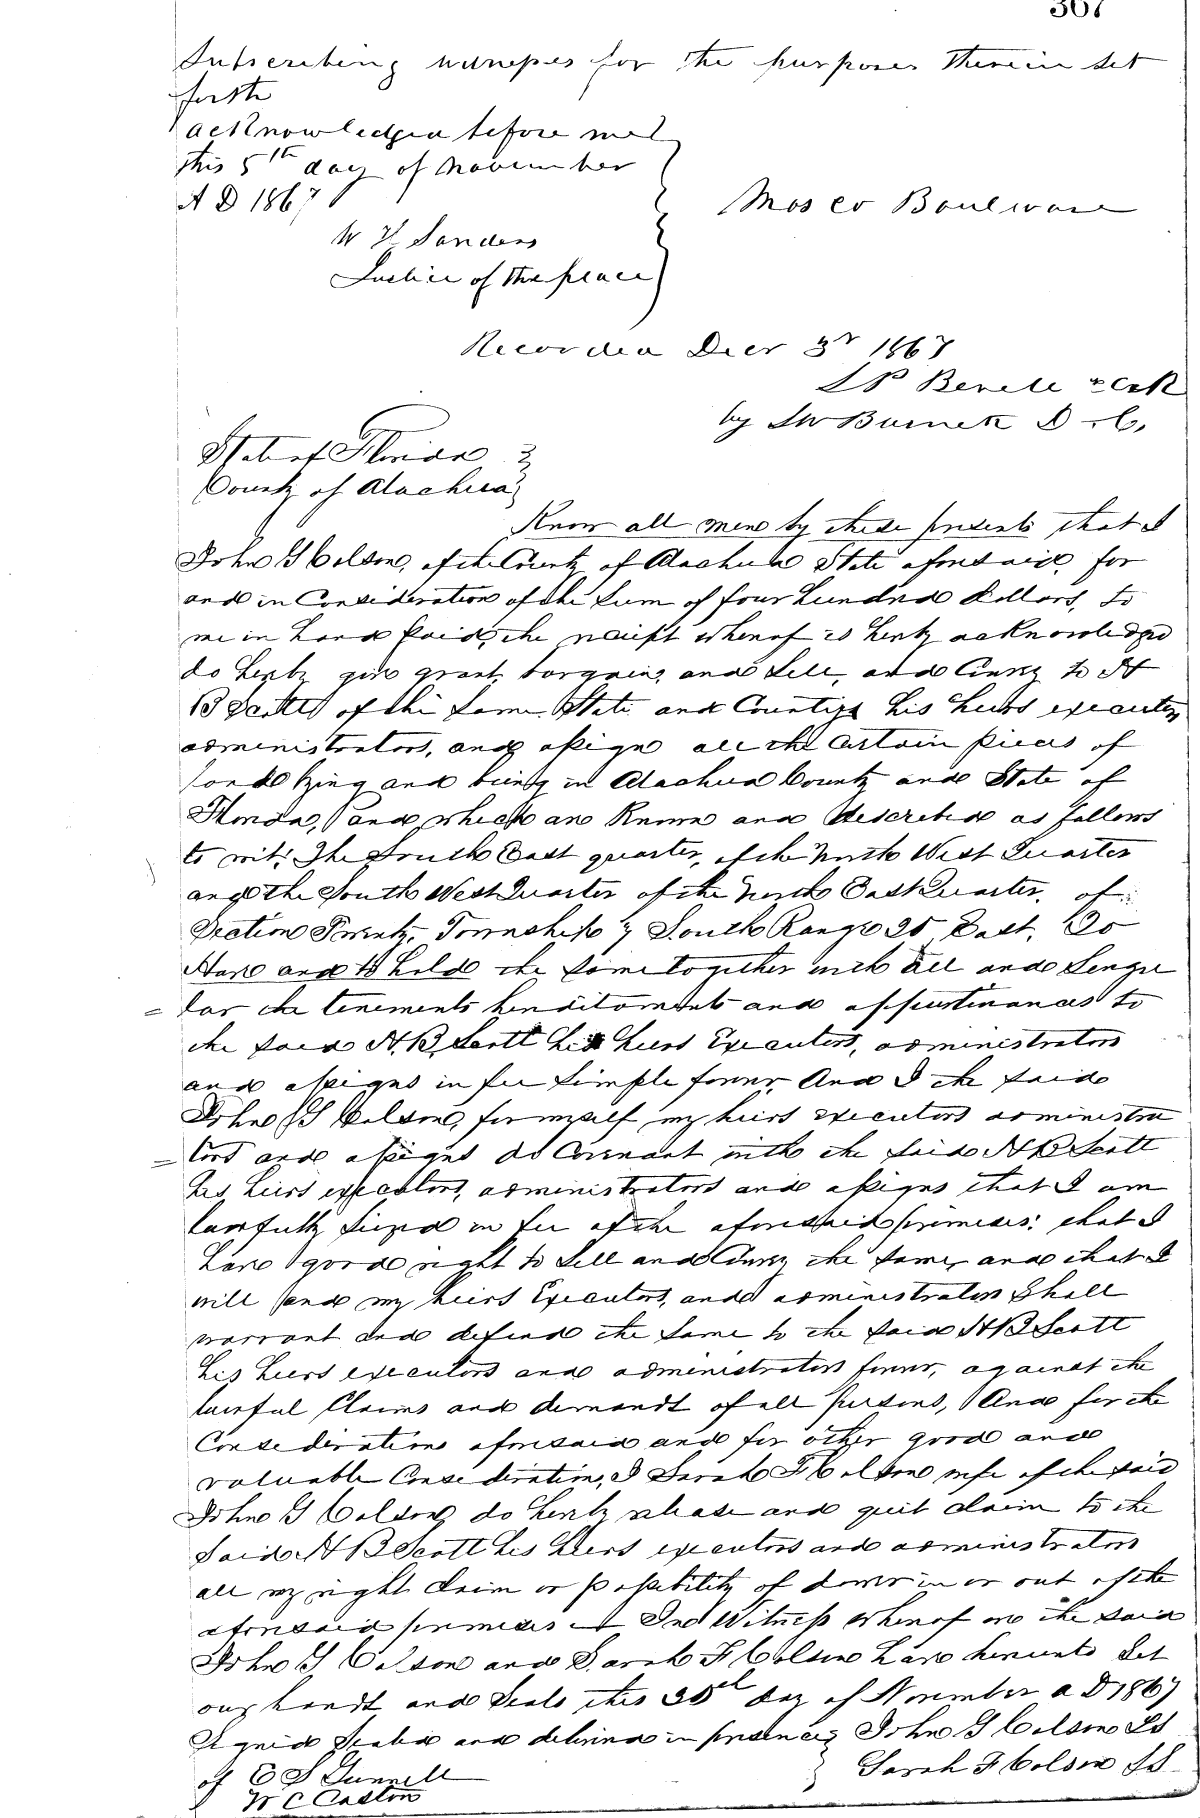 367
Subscribing witnesses for the purposes therein set
forth
acknowledged before me
this 5th day of November
A D 1867
Moses Boulware
W V Sanders
Justice of the peace
Recorded Decr 3r 1867
Clerk
by D. C.
State of Florida
County of Alachua
Know all men by these presents that I
John G Colson, of the County of Alachua State aforesaid for
and in Consideration of the sum of four hundred dollars, to
me in hand paid, the receipt whereof is herby acknowledged
do herby give grant, bargain, and sell, and Convey to N
B Scott of the same State and County his heirs executors
administrators, and assigns all the certain pieces of
land lying and being in Alachua County and State of
Florida, and which are known and described as follows
to wit; The South East quarter, of the North West Quarter
and the South West Quarter of the North East Quarter, of
Section Twenty, Township 7 South Range 20 East, To
Have and to hold the same together with all and singu
= lar the tenements hereditaments and appurtinances to
the said N. B. Scott his heirs Executors, administrators
and assigns in fee simple forever, And I the said
John G Colson, for myself my heirs executors administra
= tors and assigns do Covenant with the said N B Scott
his heirs executors, administrators and assigns that I am
lawfully siezed in fee of the aforesaid premises: that I
have good right to sell and Convey the same, and that I
will and my heirs Executors, and administrators shall
warrant and defend the same to the said N B Scott
his heirs executors and administrators forever, against the
lawful Claims and demands of all persons, And for the
Consideration aforesaid and for other good and
valuable Consideration, I Sarah F Colson wife of the said
John G Colson, do herby release and quit claim to the
said N B Scott his heirs executors and administrators
all my right claim or possibility of dower in or out of the
aforesaid premises In Witness whereof we the said
John G Colson and Sarah F Colson have hereunto set
our hands and seals this day of November A D 1867
Signed sealed and delivered in presence John G Colson LS
of Sarah F Colson LS
W C Caston